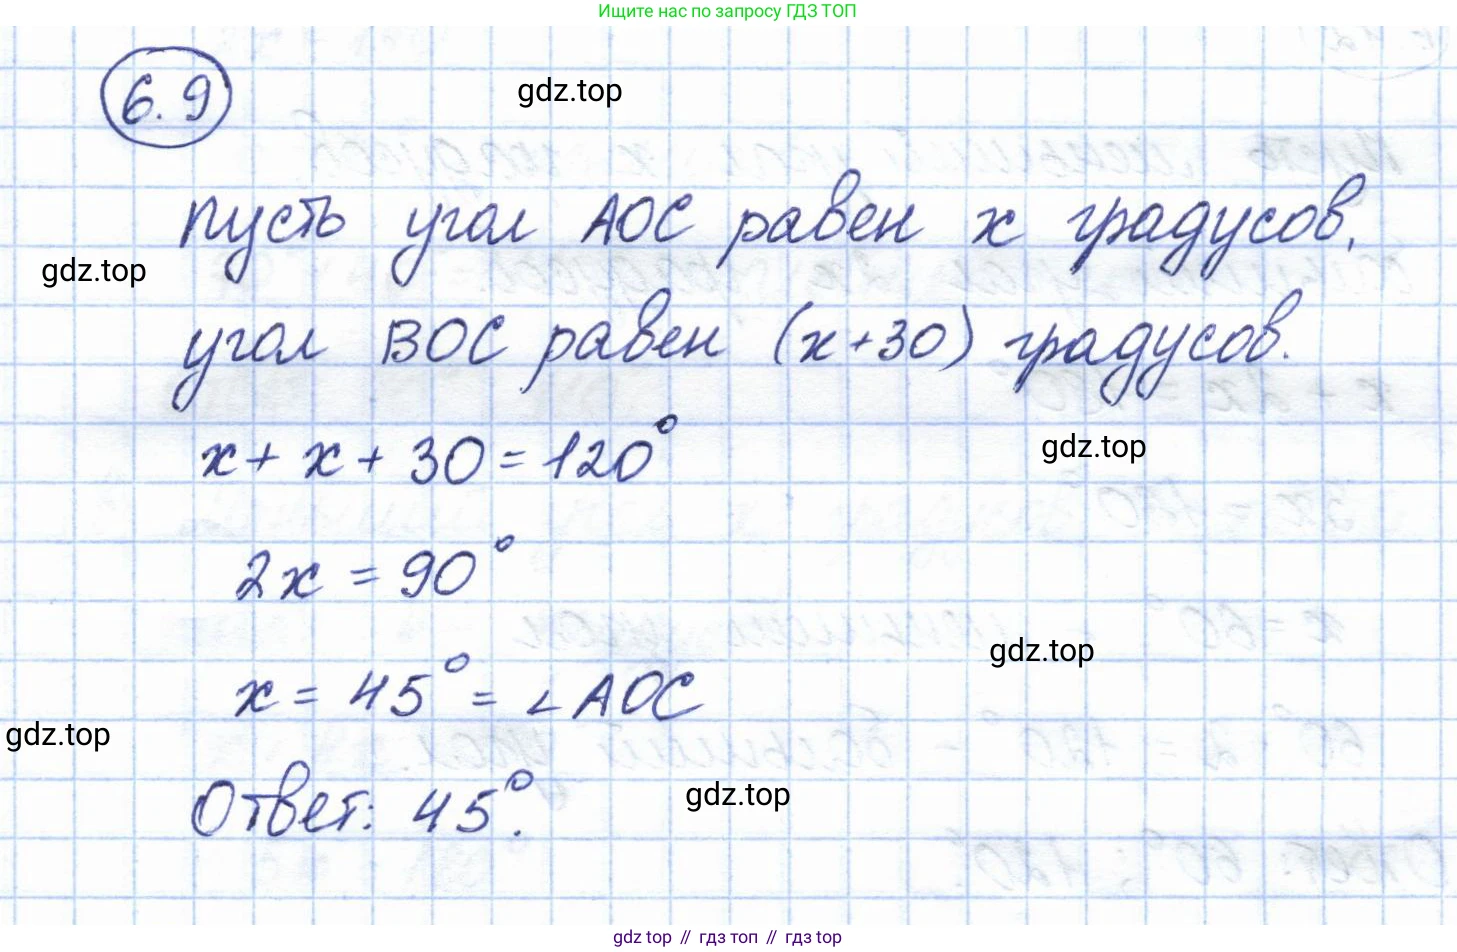 Ищите нас по запросу ГДЗ ТОП
6.9
gdz.top
Пусть угол AOC равен x градусов,
gdz.top
угол BOC равен (x+30) градусов.
x + x + 30 = 120°
gdz.top
2x = 90°
gdz.top
x = 45° = ∠AOC
gdz.top
gdz.top
Ответ: 45°.
gdz top // гдз топ // гдз top